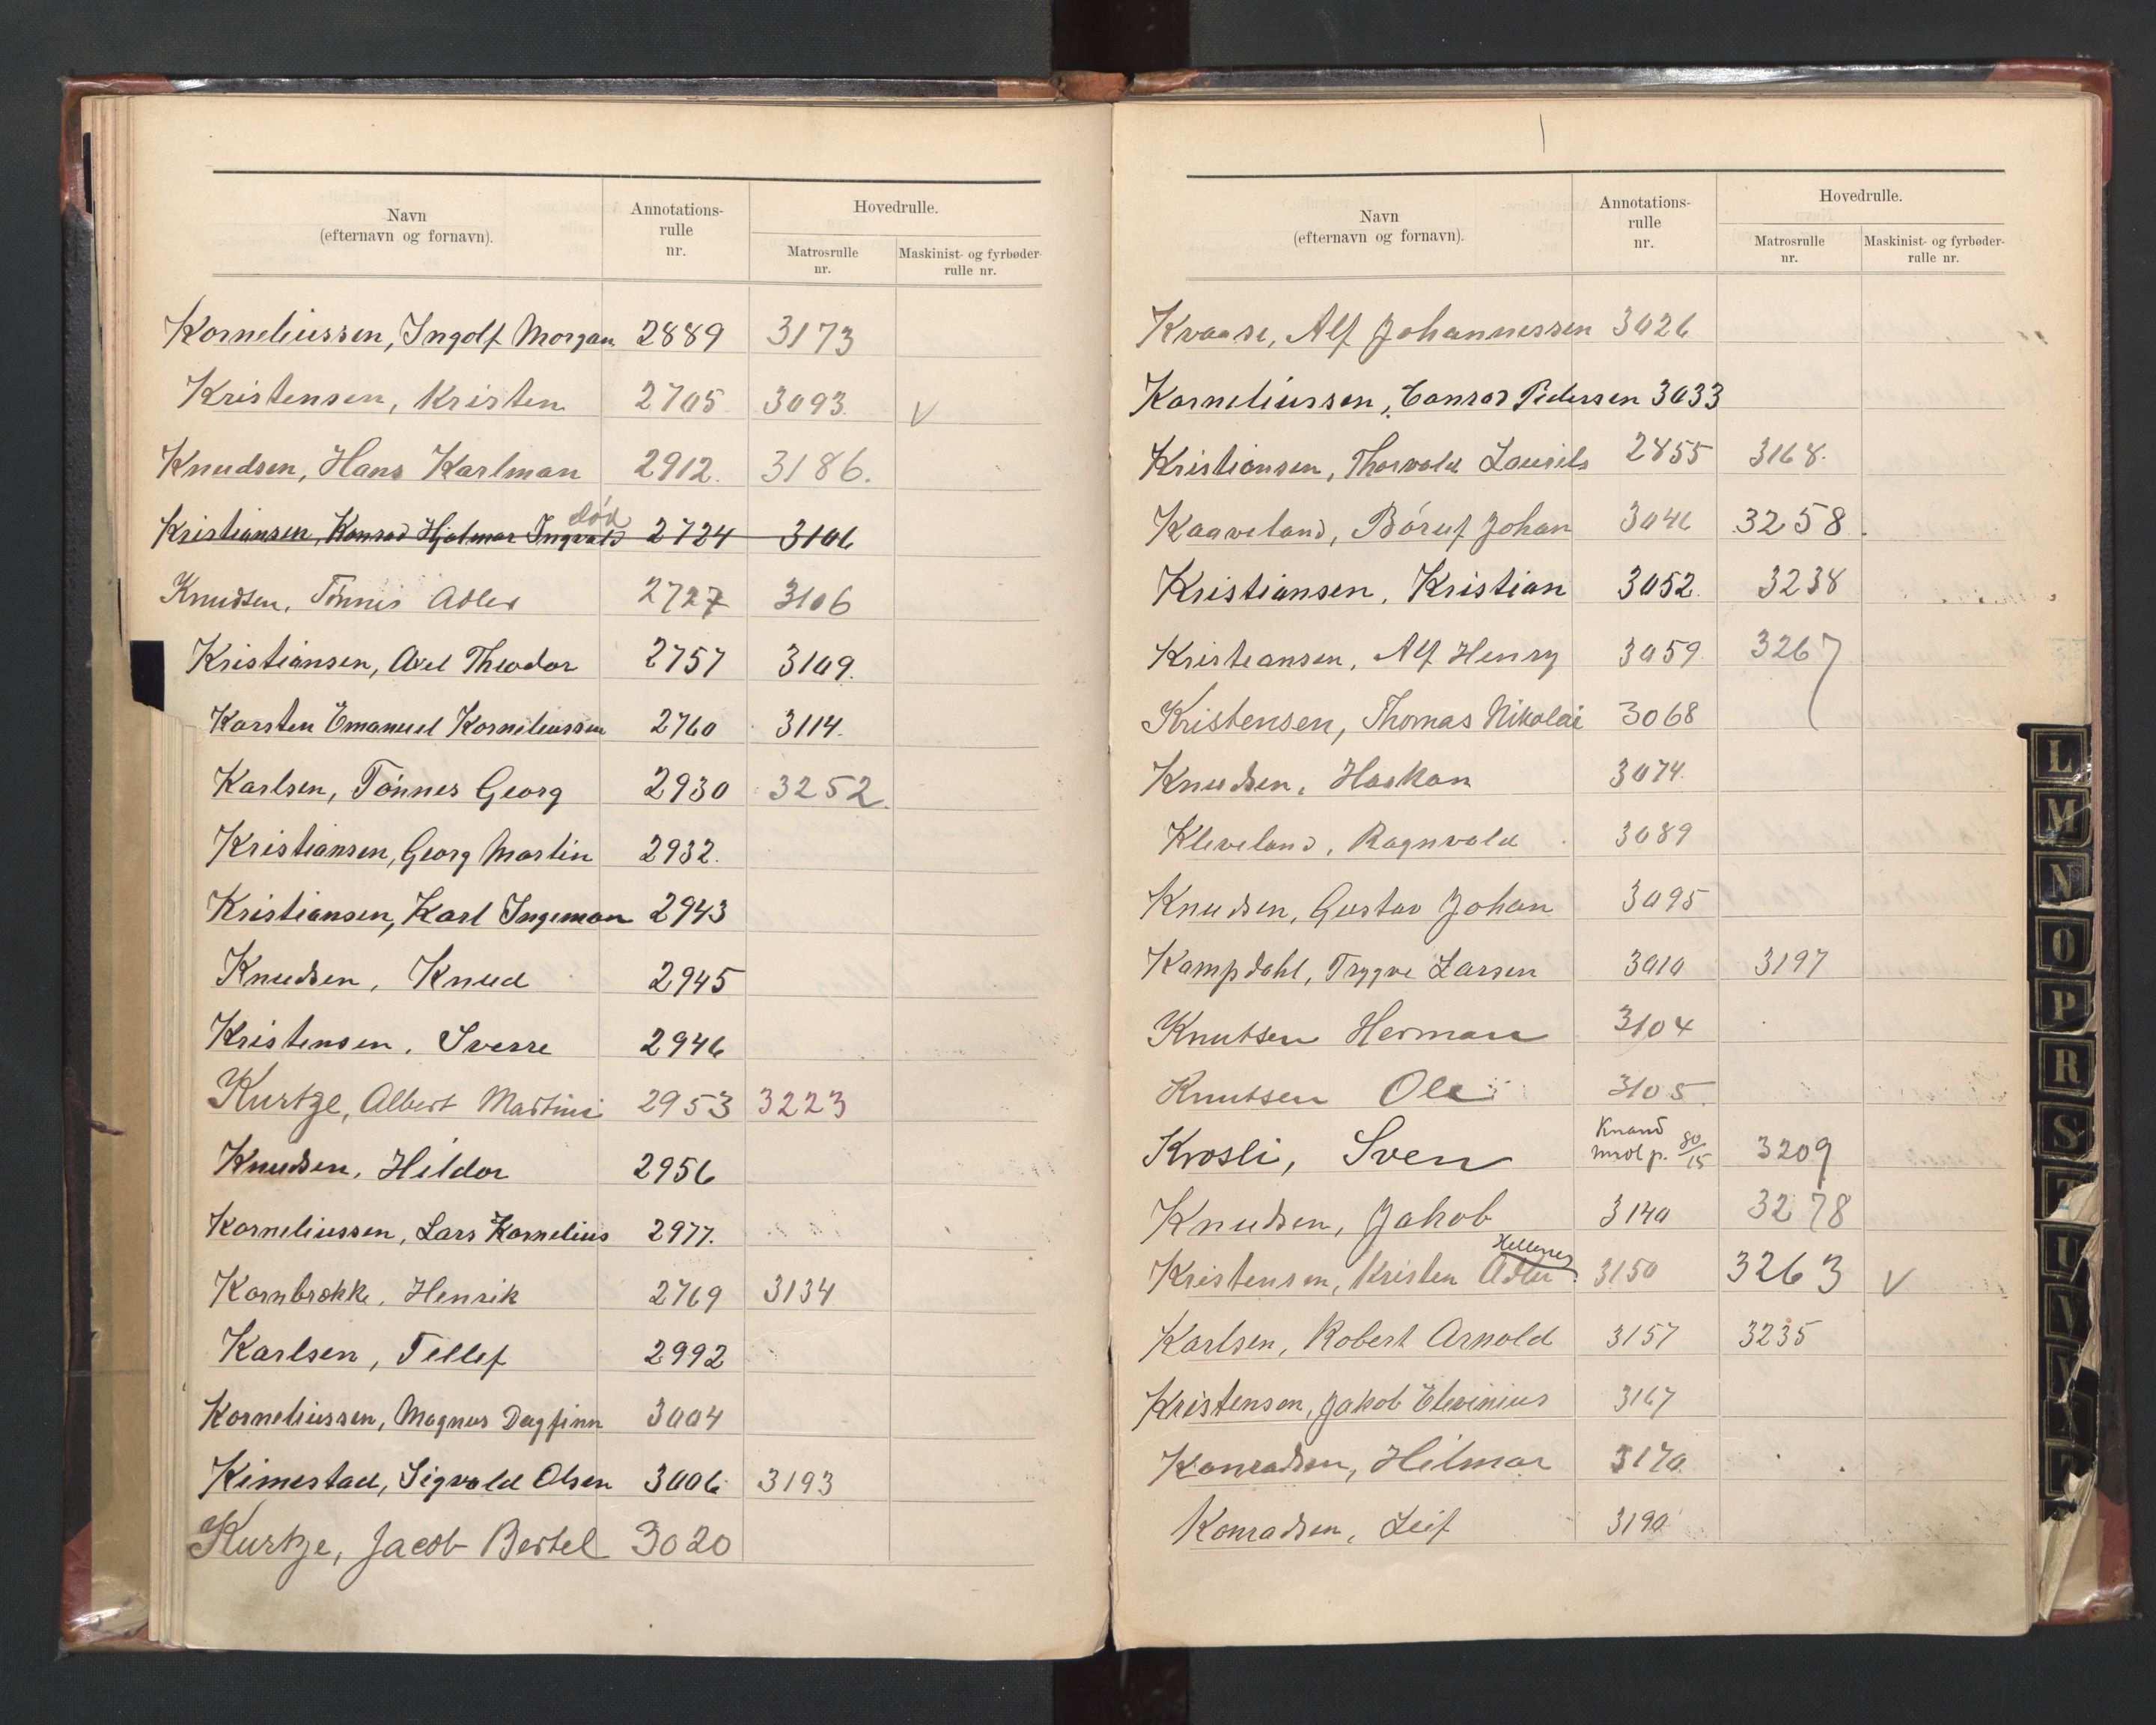 Navn
(efternavn og fornavn).
Annotations-
rulle
nr.
Hovedrulle.
Matrosrulle
nr.
Maskinist- og fyrbøder-
rulle nr.
Korneliussen, Ingolf Morgan 2889 3173
Kristensen, Kristen 2705 3093. V
Knudsen, Hans Karlman 2912. 3186.
død
Kristiansen, Konrad Hjalmar Ingvald 2724 3101
Knudsen, Tønnes Adler 2727 3106
Kristiansen, Axel Theodor 2757 3109.
Karsten Emanuel Korneliussen 2760 3114.
Karlsen, Tønnes Georg 2930 3252.
Kristiansen, Georg Martin 2932.
Kristiansen, Karl Ingeman 2943
Knudsen, Knud 2945
Kristensen, Sverre 2946
Kurtze, Albert Martini 2953 3223
Knudsen, Hildor 2956
Korneliussen, Lars Kornelius 2977.
Kornbrekke, Henrik 2769 3134
Karlsen, Tellef 2992
Korneliussen, Magnus Dagfinn 3004
Kimestad, Sigvald Olsen 3006 3193
Kurtze, Jacob Bertel 3020
Navn
(efternavn og fornavn).
Annotations-
rulle
nr.
Hovedrulle.
Matrosrulle
nr.
Maskinist- og fyrbøder-
rulle nr.
Kvaase, Alf Johannessen 3026
Korneliussen, Conrad Pedersen 3033
Kristiansen, Thorvald Laurits 2855 3168.
Kaaveland, Johan 3258.
Kristiansen, Kristian 3052. 3238
Kristiansen, Alf Henry 3059. 3267
Kristensen, Thomas Nikolai 3068
Knudsen, Haakon 3074.
Kleveland, Ragnvald 3089
Knudsen, Gustav Johan 3095
Kampdahl, Trygve Larsen 3010 3197
Knutsen Herman 3104
Knutsen Ole 3105.
Krosli, Sven 80/15 3209
Knudsen, Jakob 3140 3278
Hellenes
Kristensen, Kristen Adler. 3150 3263 V
Karlsen, Robert Arnold 3157 3235
Kristensen, Jakob 3167
Konradsen, Hilmar 3170.
Konradsen, Leif 3190
L
M
N
O
P
R
S
T
U
V